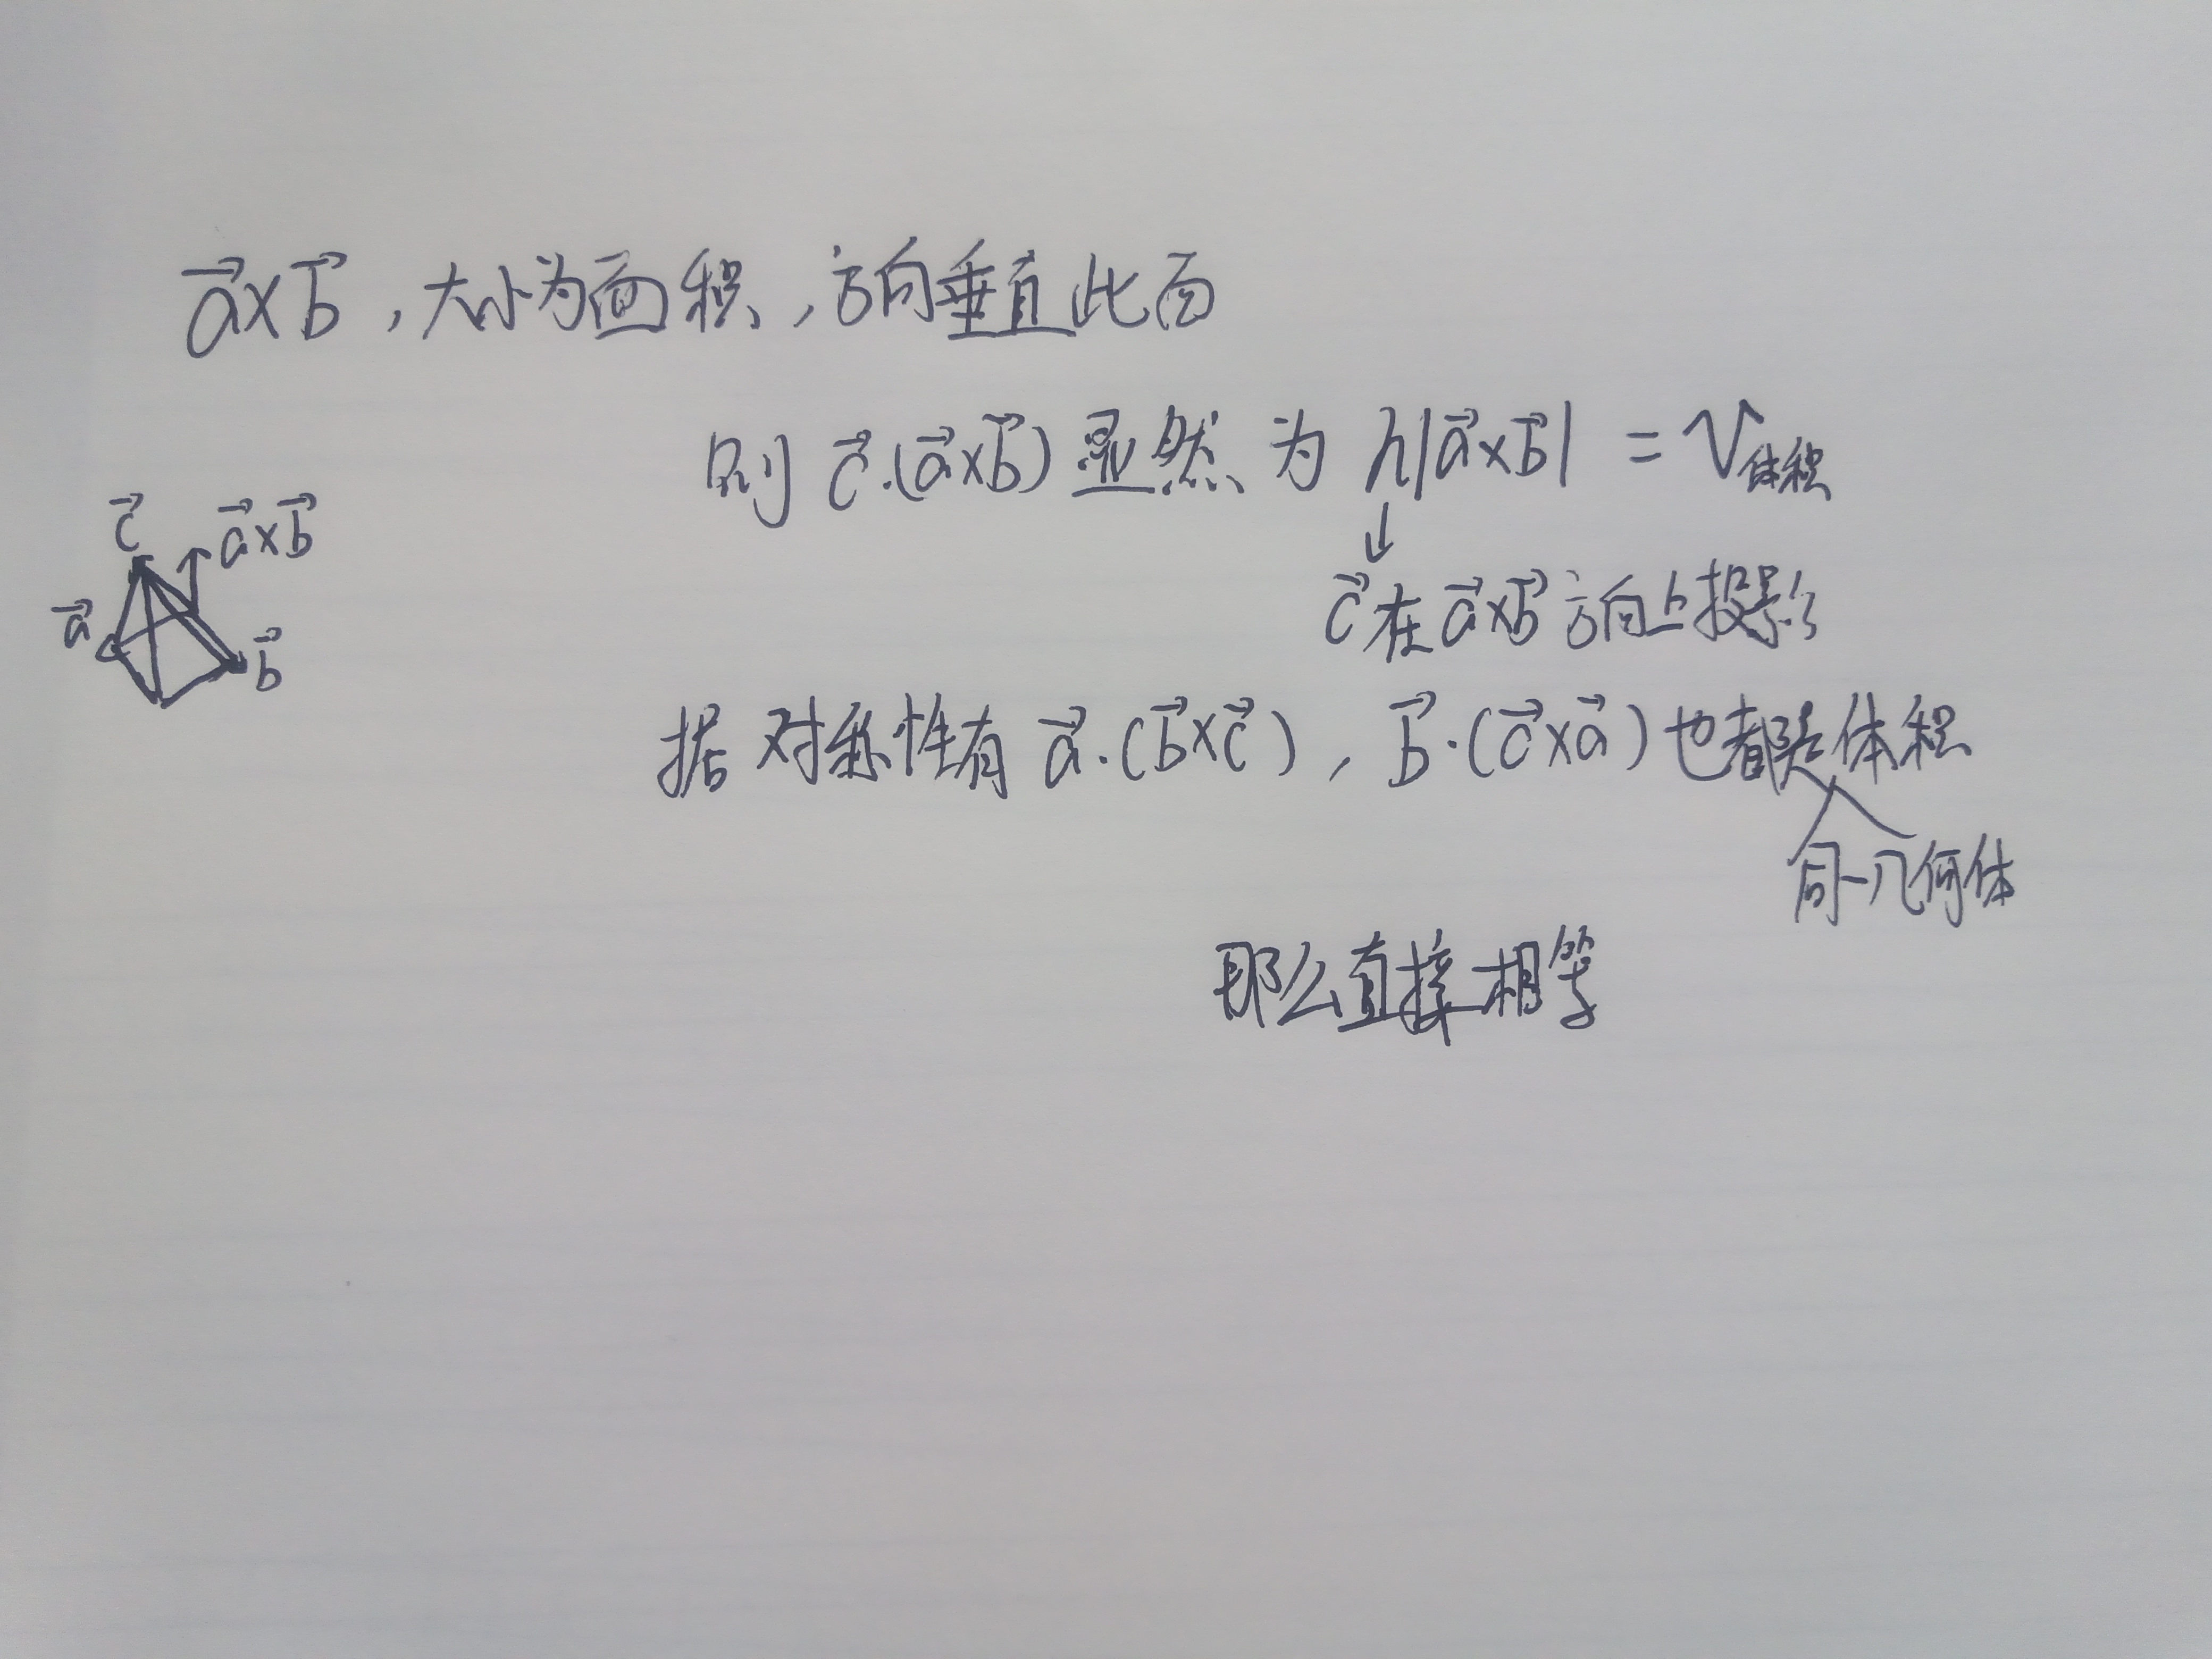 a⃗×b⃗，大小为面积，方向垂直此面
则 c⃗·(a⃗×b⃗) 显然 为 h|a⃗×b⃗| = V体积
↓
c⃗在a⃗×b⃗方向上投影
c⃗
a⃗×b⃗
a⃗
b⃗
据对称性有 a⃗·(b⃗×c⃗)，b⃗·(c⃗×a⃗)也都是体积
同一几何体
那么直接相等